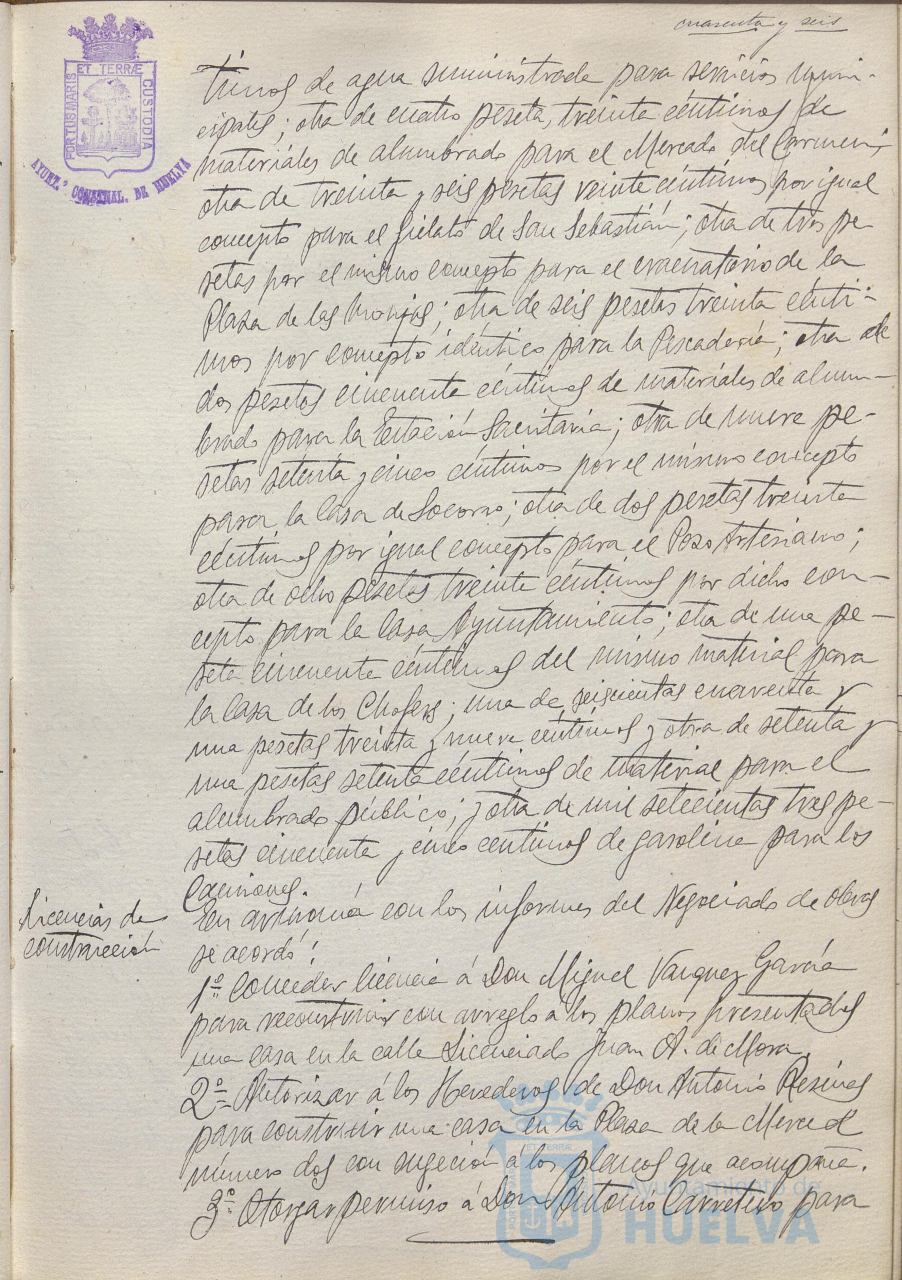 cuarenta y seis
PORTUS MARIS ET TERRÆ CUSTODIA
AYUNT.º CONST.NAL. DE HUELVA
timos de agua suministrada para servicios muni-
cipales; otra de cuatro pesetas treinta céntimos de
materiales de alumbrado para el Mercado del Carmen;
otra de treinta y seis pesetas veinte céntimos por igual
concepto para el Fielato de San Sebastián; otra de tres pe-
setas por el mismo concepto para el evacuatorio de la
Plaza de las Monjas; otra de seis pesetas treinta cénti-
mos por concepto idéntico para la Pescadería; otra de
dos pesetas cincuenta céntimos de materiales de alum-
brado para la Estación Sanitaria; otra de nueve pe-
setas setenta y cinco céntimos por el mismo concepto
para la Casa de Socorro; otra de dos pesetas treinta
céntimos por igual concepto para el Pozo Artesiano;
otra de ocho pesetas treinta céntimos por dicho con-
cepto para la Casa Ayuntamiento; otra de una pe-
seta cincuenta céntimos del mismo material para
la Casa de los Chofers; una de seiscientas cuarenta y
una pesetas treinta y nueve céntimos y otra de setenta y
una pesetas setenta céntimos de material para el
alumbrado público; y otra de mil setecientas tres pe-
setas cincuenta y cinco centimos de gasolina para los
Camiones.
Licencias de
construcción
En armonía con los informes del Negociado de Obras
se acordó:
1º Conceder licencia á Don Miguel Vazquez García
para reconstruir con arreglo á los planos presentados
una casa en la calle Licenciado Juan A. de Mora.
2º Autorizar á los Herederos de Don Antonio Resinas
para construir una casa en la Plaza de la Merced
número dos con sujeción á los planos que acompaña.
3º Otorgar permiso á Don Antonio Carretero para
Ayuntamiento de
HUELVA